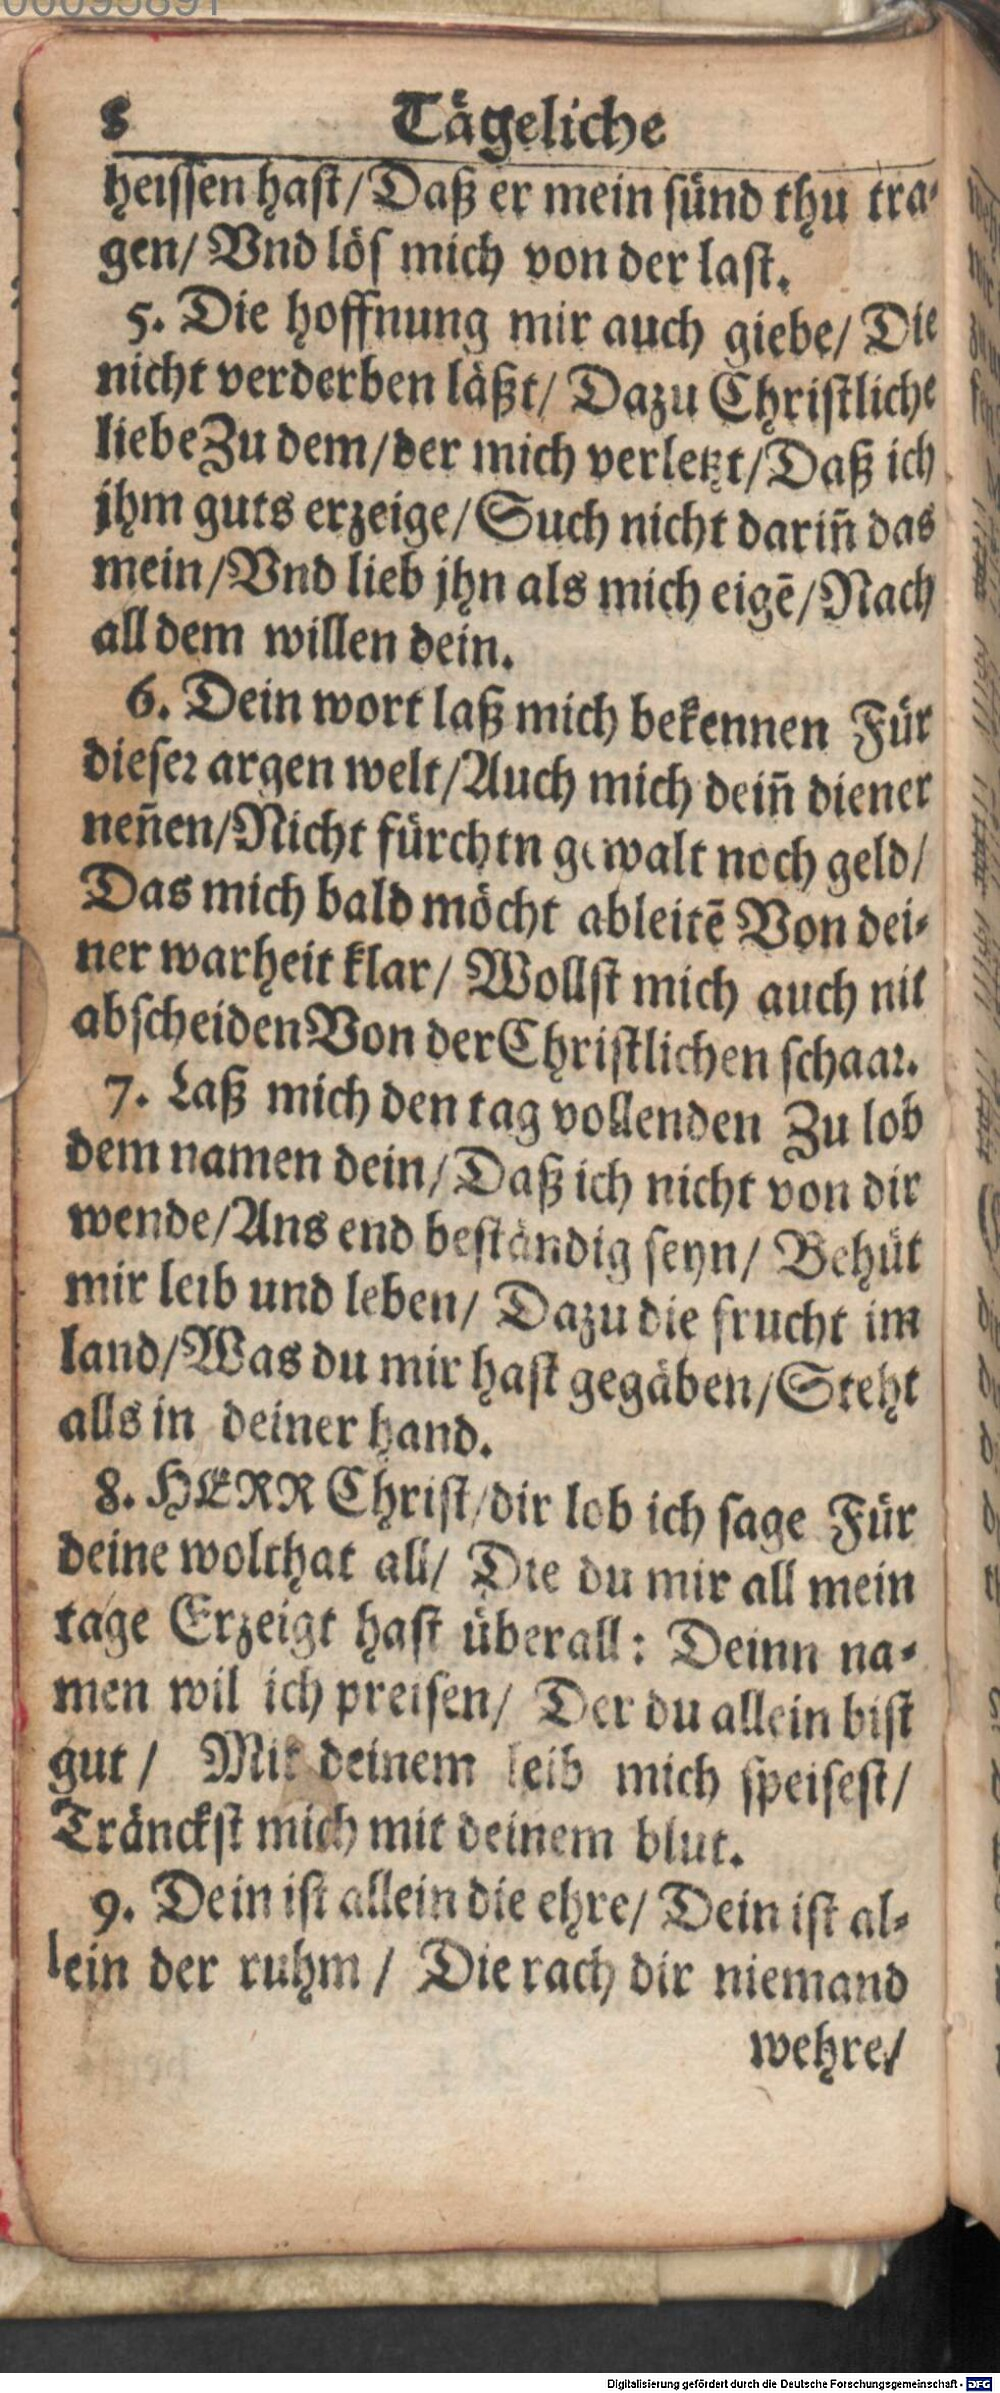 00095891
8 Tägeliche
heissen hast/ Daß er mein sünd thu tra-
gen/ Vnd lös mich von der last.
5. Die hoffnung mir auch giebe/ Die
nicht verderben läßt/ Dazu Christliche
liebe Zu dem/ der mich verletzt/ Daß ich
jhm guts erzeige/ Such nicht dariñ das
mein/ Vnd lieb jhn als mich eigē/ Nach
all dem willen dein.
6. Dein wort laß mich bekennen Für
dieser argen welt/ Auch mich deiñ diener
neñen/ Nicht fürchtn gewalt noch geld/
Das mich bald möcht ableitē Von dei-
ner warheit klar/ Wollst mich auch nit
abscheiden Von der Christlichen schaar.
7. Laß mich den tag vollenden Zu lob
dem namen dein/ Daß ich nicht von dir
wende/ Ans end beständig seyn/ Behüt
mir leib und leben/ Dazu die frucht im
land/ Was du mir hast gegäben/ Steht
alls in deiner hand.
8. HERR Christ/ dir lob ich sage Für
deine wolthat all/ Die du mir all mein
tage Erzeigt hast überall: Deinn na-
men wil ich preisen/ Der du allein bist
gut/ Mit deinem leib mich speisest/
Tränckst mich mit deinem blut.
9. Dein ist allein die ehre/ Dein ist al-
lein der ruhm/ Die rach dir niemand
wehre/
Digitalisierung gefördert durch die Deutsche Forschungsgemeinschaft - DFG